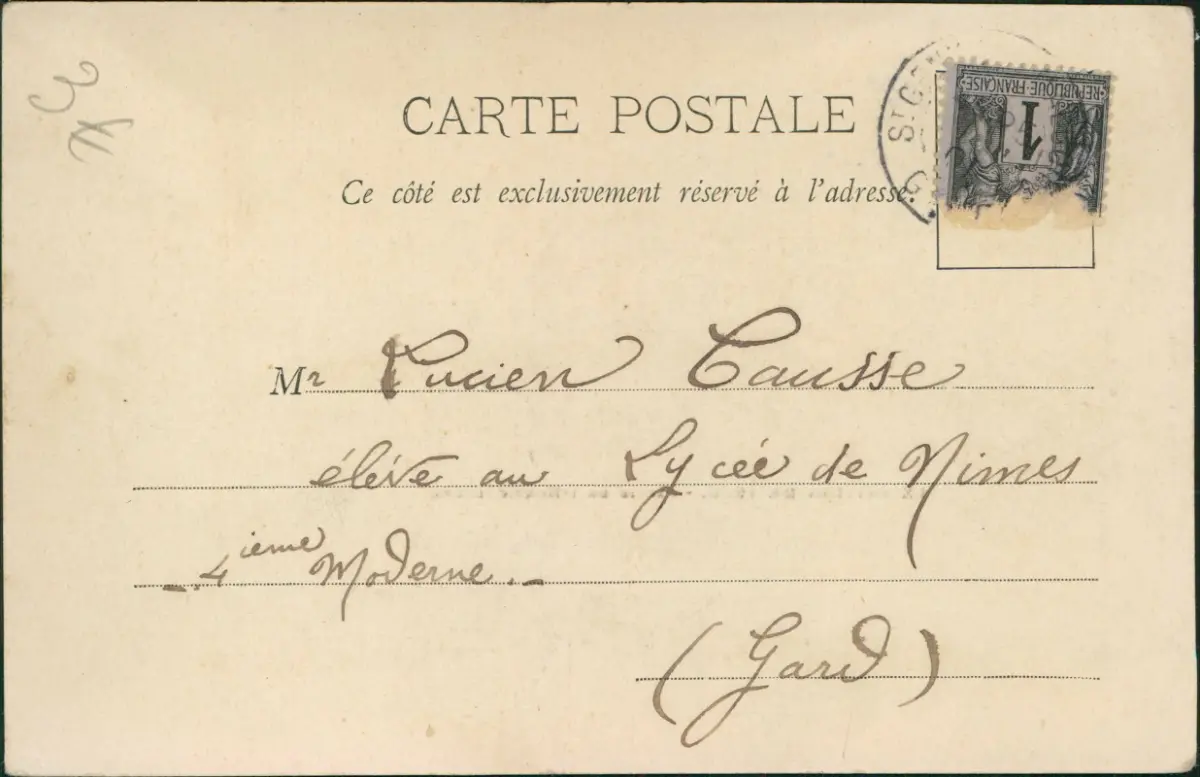 CARTE POSTALE
Ce côté est exclusivement réservé à l'adresse.
REPUBLIQUE FRANÇAISE
1
Mr Lucien Causse
élève au Lycée de Nimes
4ieme Moderne.
(Gard)